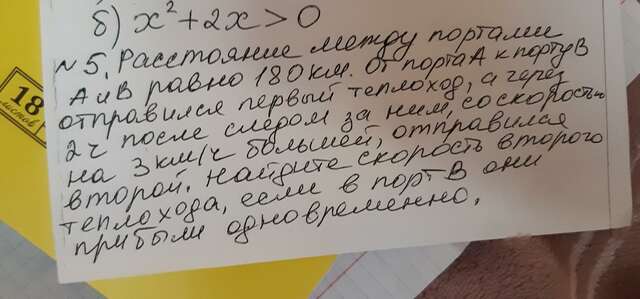 б) x² + 2x > 0
№5. Расстояние между портами
А и В равно 180 км. От порта А к порту В
отправился первый теплоход, а через
2 ч после следом за ним, со скоростью
на 3 км/ч большей, отправился
второй. Найдите скорость второго
теплохода, если в порт В они
прибыли одновременно.
18
листов